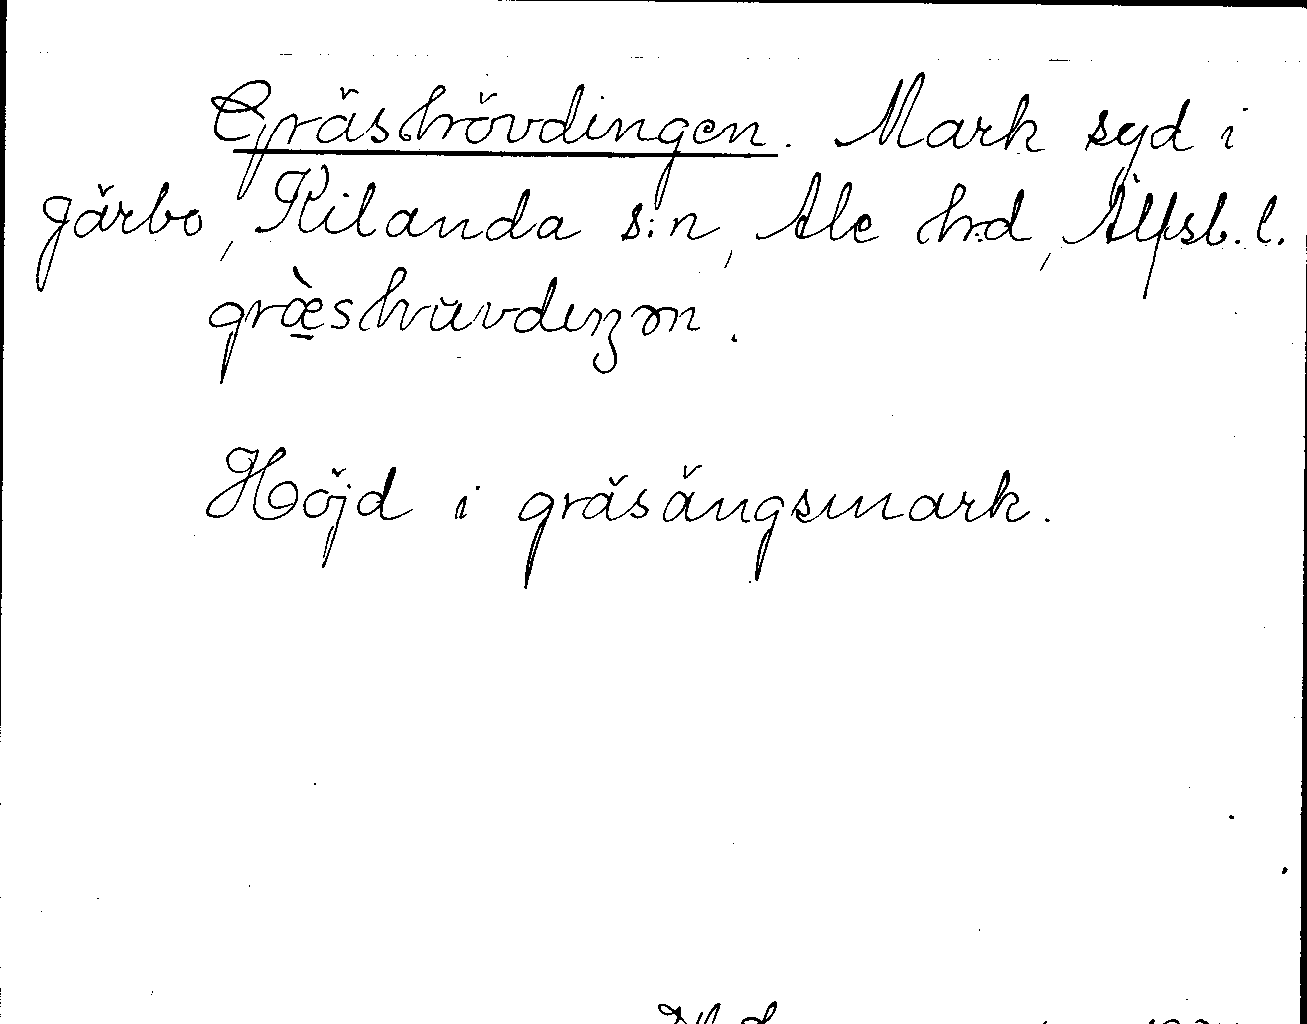 Gräshövdingen. Mark syd i
gärbo, Kilanda s:n, Ale h:d, Älfsb. l.
græ̀shuvdiŋən.
Höjd i gräsängsmark.